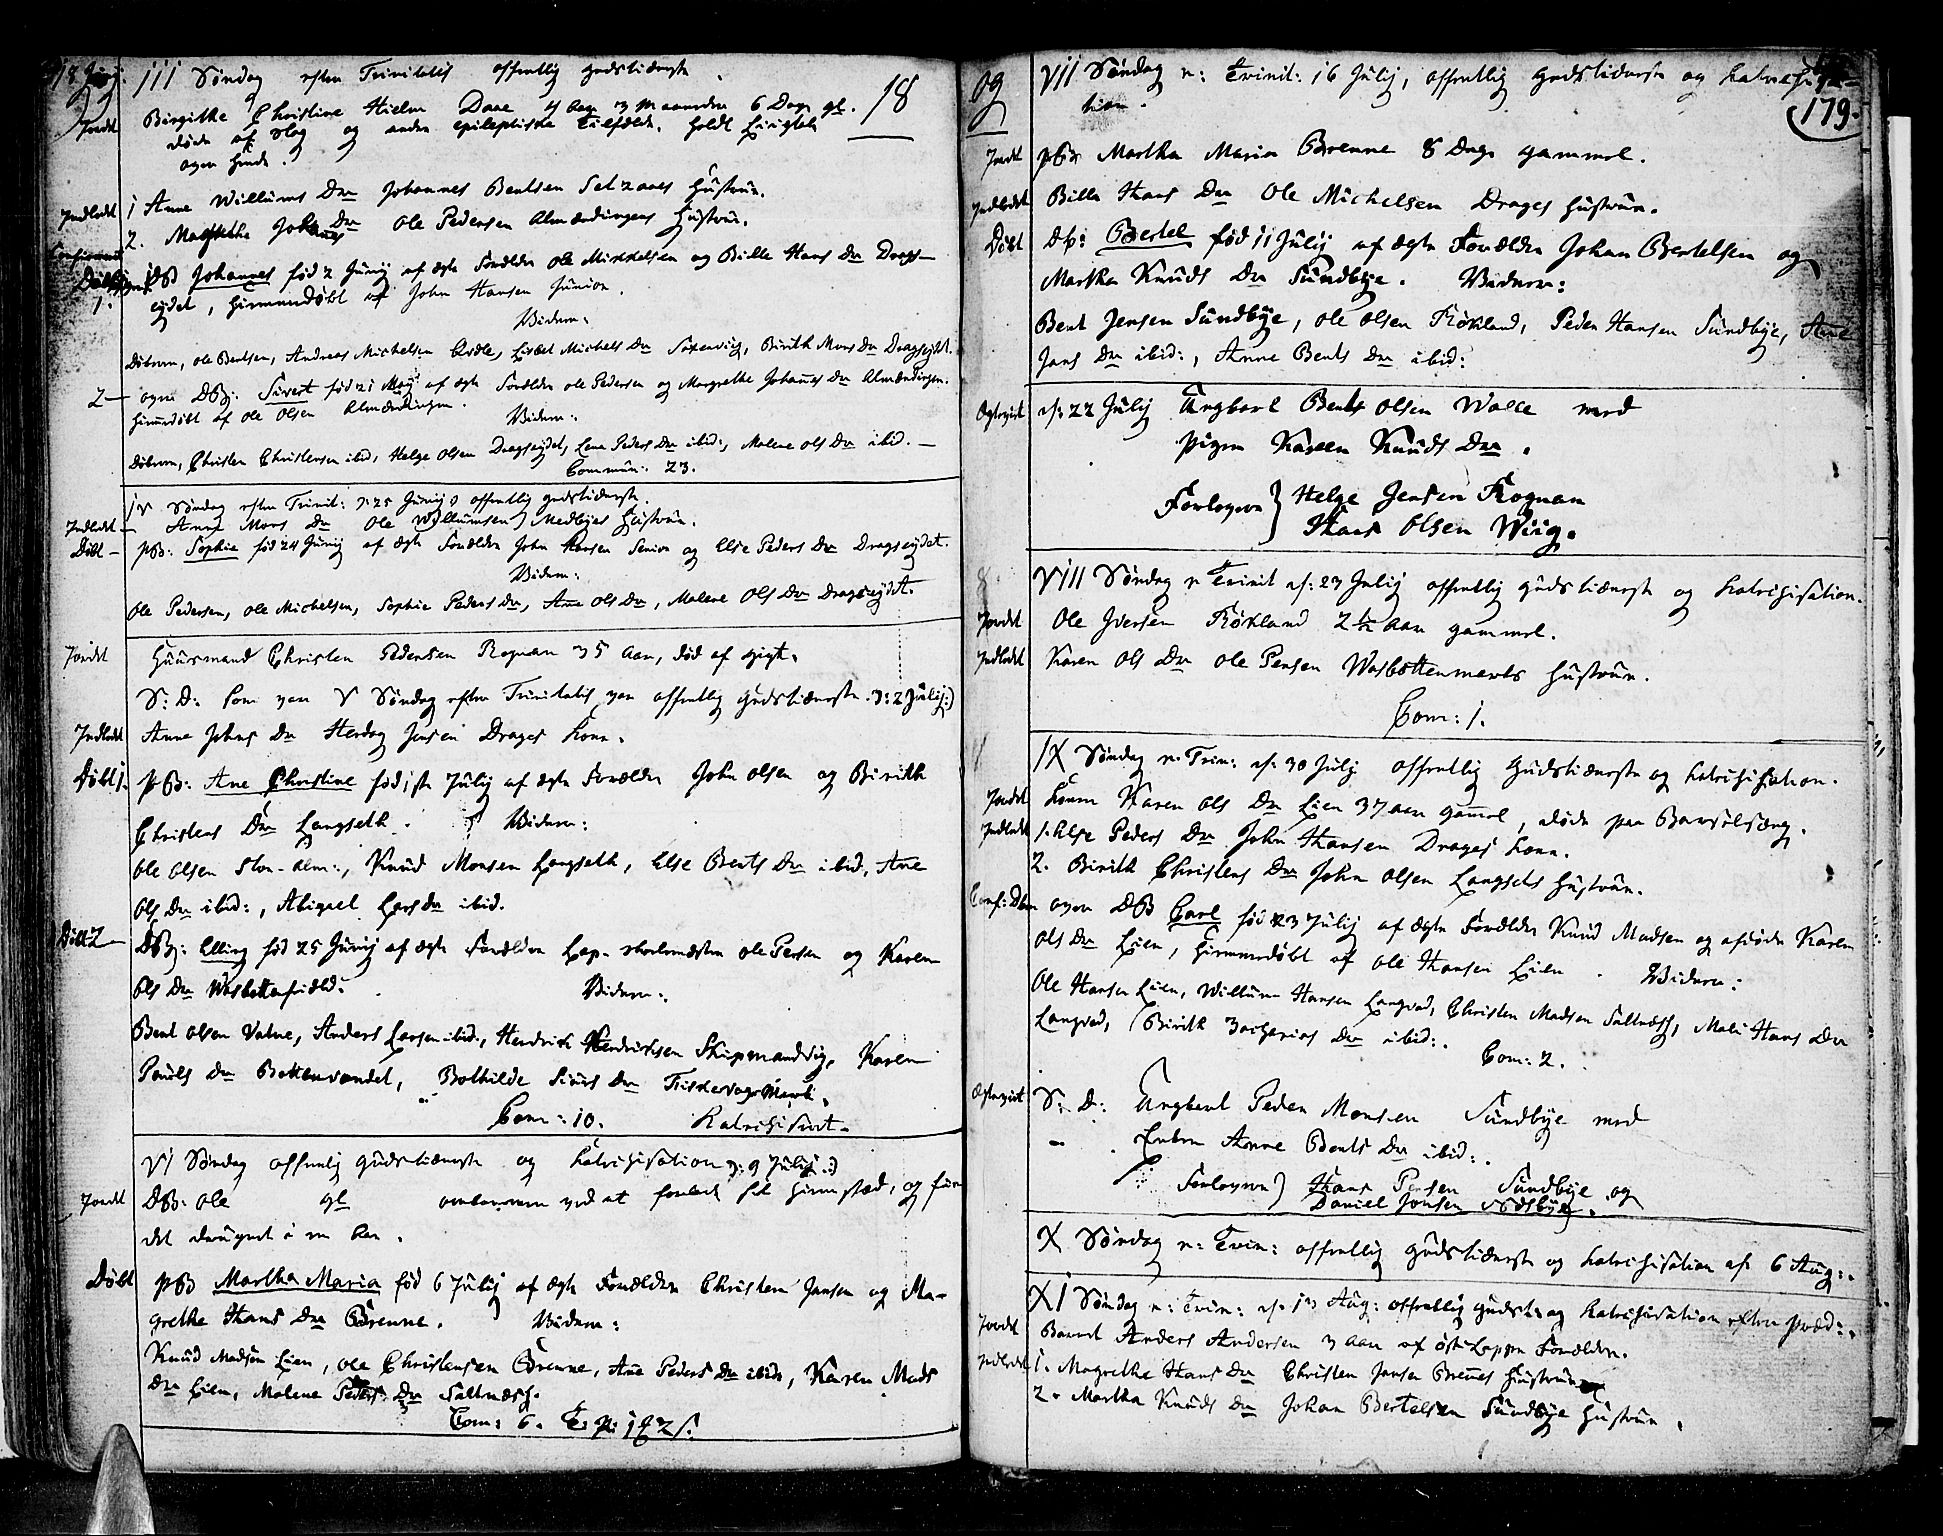 18 Junj. III Søndag efter Trinitatis offentlig gudstieneste
Jordet Birgithe Christine Hielm Daae 4 Aar 3 Maaneder 6 Dage gl. 18
døde af slag og andre epileptiske Tilfælde. holdt Liigtale
over hende.
Indledet 1 Anne Willums Dr Johannes Bentsen Saltnæses Hustrue.
2. Magrethe Johannes Dr Ole Pedersen Almændingens Hustrue.
Confirmeret Døbt 1. DB Johannes fød 2 Junij af ægte Forældre Ole Mikkelsen og Bille Hans Dr Drags-
eydet, hiemmedøbt af John Hansen Junior.
Vidne:
Døberen, Ole Bentsen, Andreas Michelsen, Lisbet Michels Dr Saxenvig, Birith Mons Dr Dragseydet.
2 ogsaa DB. Sivert fød 21 Maj af ægte Forældre Ole Pedersen og Margrethe Johannes Dr Almændingen.
hiemmedøbt af Ole Olsen Almændingen.
Vidne:
Døberen, Christen Christensen ibid, Helge Olsen Dragseydet, Lene Peders Dr ibid:, Malene Ols Dr ibid.
Commun: 23.
IV Søndag efter Trinit: 25 Junij offentlig gudstieneste.
Indledet Anne Mons Dr Ole Willumsen Medbyes Hustrue.
Døbt PB: Sophie fød 24 Junij af ægte Forældre John Hansen Senior og Else Peders Dr Dragseydet.
Vidne:
Ole Pedersen, Ole Michelsen, Sophie Peders Dr, Ane Ols Dr, Malene Ols Dr Dragseydet.
Jordet Huusmand Christen Pedersen Rognan 35 Aar, død af gigt.
S: D: som var V Søndag efter Trinitatis var offentlig gudstieneste 2 Julij:)
Indledet Anne Johns Dr Herdag Jensen Drages Kone.
Døbt 1. PB: Ane Christine fød 1ste Julij af ægte Forældre John Olsen og Birith
Christens Dr Langseth. Vidne:
Ole Olsen Stor-Alm:, Knud Monsen Langseth, Else Bents Dr ibid, Ane
Ols Dr ibid:, Abigael Lars Dr ibid.
Døbt 2 DB: Elling fød 25 Junij af ægte Forældre Lap-skolemester Ole Persen og Karen
Ols Dr Wasbottenfiæld. Vidne:
Bent Olsen Vatne, Anders Larsen ibid:, Hendrich Hendrichsen Skipmandvig, Karen
Pouels Dr Bottenvandet, Bothilde Siurs Dr
Com: 10. Katechiseret.
VI Søndag offentlig gudstieneste og Katechisation 9 Julij:)
Jordet DB: Ole gl omkommen ved at
det i en
Døbt PB Martha Maria fød 6 Julij af ægte Forældre Christen Jansen og Ma-
grethe Hans Dr Brenne. Vidne:
Knud Madsen Lien, Ole Christensen Brenne, Ane Peders Dr ibid:, Karen Mads
Dr Lien, Malene Peders Dr Saltnæs.
Com: 6.
og VII Søndag e: Trinit: 16 Julij, offentlig gudstieneste og Katechisa-
tion. 179.
Jordet PB Martha Maria Brenne 8 Dage gammel.
Indledet Bille Hans Dr Ole Michelsen Drages Hustrue.
Døbt DB: Bertel fød 11 Julij af ægte Forældre Johan Bertelsen og
Martha Knuds Dr Sundbye. Vidne:
Bent Jensen Sundbye, Ole Olsen Røkland, Peder Hansen Sundbye, Ane
Jens Dr ibid:, Anne Bents Dr ibid:
Egteviet 22 Julij Ungkarl Bent Olsen med
Pigen Karen Knuds Dr.
Forlovere } Helge Jensen Rognan
Hans Olsen Wiig.
VIII Søndag e Trinit 23 Julij offentlig gudstieneste og Katechisation.
Jordet Ole Iversen Røkland 2 1/2 Aar gammel.
Indledet Karen Ols Dr Ole Persen Hustrue.
Com: 1.
IX Søndag e: Trin: 30 Julij offentlig gudstieneste og Katechisation.
Jordet Konen Karen Ols Dr Lien 37 Aar gammel, døde paa Barselsæng.
Indledet 1. Else Peders Dr John Hansen Drages Kone.
2. Birith Christens Dr John Olsen Langsets Hustrue.
Conf: Dben ogsaa DB Carl fød 23 Julij af ægte Forældre Knud Madsen og afdøde Karen
Ols Dr Lien, hiemmedøbt af Ole Hansen Lien. Vidne:
Ole Hansen Lien, Willum Hansen Langvad, Christen Madsen Saltnæs, Mali Hans Dr
Langvad, Birith Zacharias Dr ibid:.
Com: 2.
Egteviet S: D: Ungkarl Peder Monsen Sundbye med
Enken Anne Bents Dr ibid:.
Forlovere } Hans Persen Sundbye og
Daniel Jonsen
X Søndag e: Trin: offentlig gudstieneste og Katechisation 6 Aug:.
XI Søndag e: Trin: 13 Aug: offentlig gudst: og Katechisation efter Præd:.
Jordet Barnet Anders Andersen 3 Aar af Forældre.
Indledet 1. Magrethe Hans Dr Christen Jansen Brennes Hustrue
2. Martha Knuds Dr Johan Bertelsen Sundbye Hustrue.